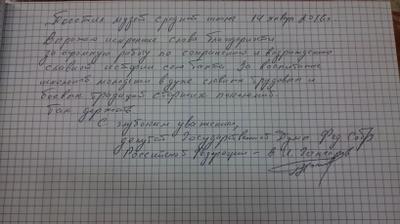 Посетил музей средней школы 14 января 2016 г.
Выражаю искренние слова благодарности
за огромную работу по сохранению и возрождению
славной истории За воспитание
молодежи в духе славных трудовых и
боевых традиций старших поколений.
Так держать
С глубоким уважением,
депутат Государственной Думы Фед. Собр.
Российской Федерации - В. И.